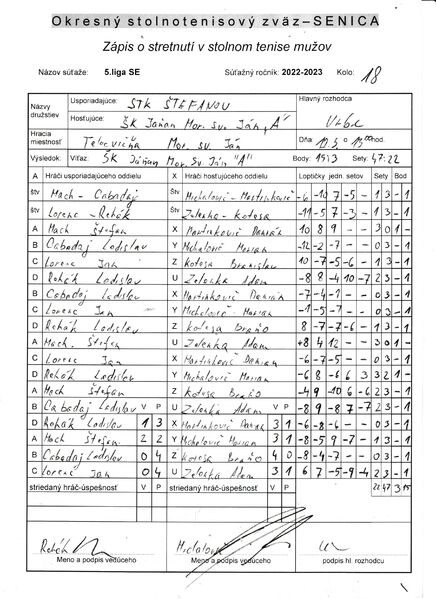 Okresný stolnotenisový zväz – SENICA
Zápis o stretnutí v stolnom tenise mužov
Názov súťaže: 5.liga SE Súťažný ročník: 2022-2023 Kolo: 18
Názvy družstiev
Usporiadajúce: STK ŠTEFANOV
Hosťujúce: ŠK Jánan Mor. Sv. Ján, "A"
Hlavný rozhodca
Hracia miestnosť Telocvičňa Mor. Sv. Ján
Dňa:
Výsledok: Víťaz: ŠK Jánan Mor. Sv. Ján "A" Body: 15:3 Sety: 47:22
A Hráči usporiadajúceho oddielu X Hráči hosťujúceho oddielu Loptičky jedn. setov Sety Bod
štv Mach - Cabadaj štv Michalovič - Martinkovič -6 -10 7 -5 - 1 3 - 1
štv Lorenc - Rehák štv Zelenka - Kotosa -11 -5 7 -3 - 1 3 - 1
A Mach Štefan X Martinkovič Damián 10 8 9 - - 3 0 1 -
B Cabadaj Ladislav Y Michalovič Marian -12 -2 -7 - - 0 3 - 1
C Lorenc Jan Z Kotosa Branislav -10 -7 -5 -6 - 1 3 - 1
D Rehák Ladislav U Zelenka Adam -8 8 -4 10 -7 2 3 - 1
B Cabadaj Ladislav X Martinkovič Damián -7 -4 -1 - - 0 3 - 1
C Lorenc Jan Y Michalovič Marian -1 -5 -7 - - 0 3 - 1
D Rehák Ladislav Z Kotosa Braňo 8 -7 -7 -6 - 1 3 - 1
A Mach Štefan U Zelenka Adam 8 4 12 - - 3 0 1 -
C Lorenc Jan X Martinkovič Damian -6 -7 -5 - - 0 3 - 1
D Rehák Ladislav Y Michalovič Marian -6 8 -6 6 3 3 2 1 -
A Mach Štefan Z Kotosa Braňo -4 9 -10 6 -6 2 3 - 1
B Cabadaj Ladislav V P U Zelenka Adam V P -8 9 -8 7 -7 2 3 - 1
D Rehák Ladislav 1 3 X Martinkovič Damian 3 1 -6 -8 -6 - - 0 3 - 1
A Mach Štefan 2 2 Y Michalovič Marian 3 1 -8 -5 9 -7 - 1 3 - 1
B Cabadaj Ladislav 0 4 Z Kotosa Braňo 4 0 -8 -4 -7 - - 0 3 - 1
C Lorenc Jan 0 4 U Zelenka Adam 3 1 6 7 -5 -9 -4 2 3 - 1
striedaný hráč-úspešnosť V P striedaný hráč-úspešnosť V P 22 47 3 15
Rehák Michalovič
Meno a podpis vedúceho Meno a podpis vedúceho podpis hl. rozhodcu